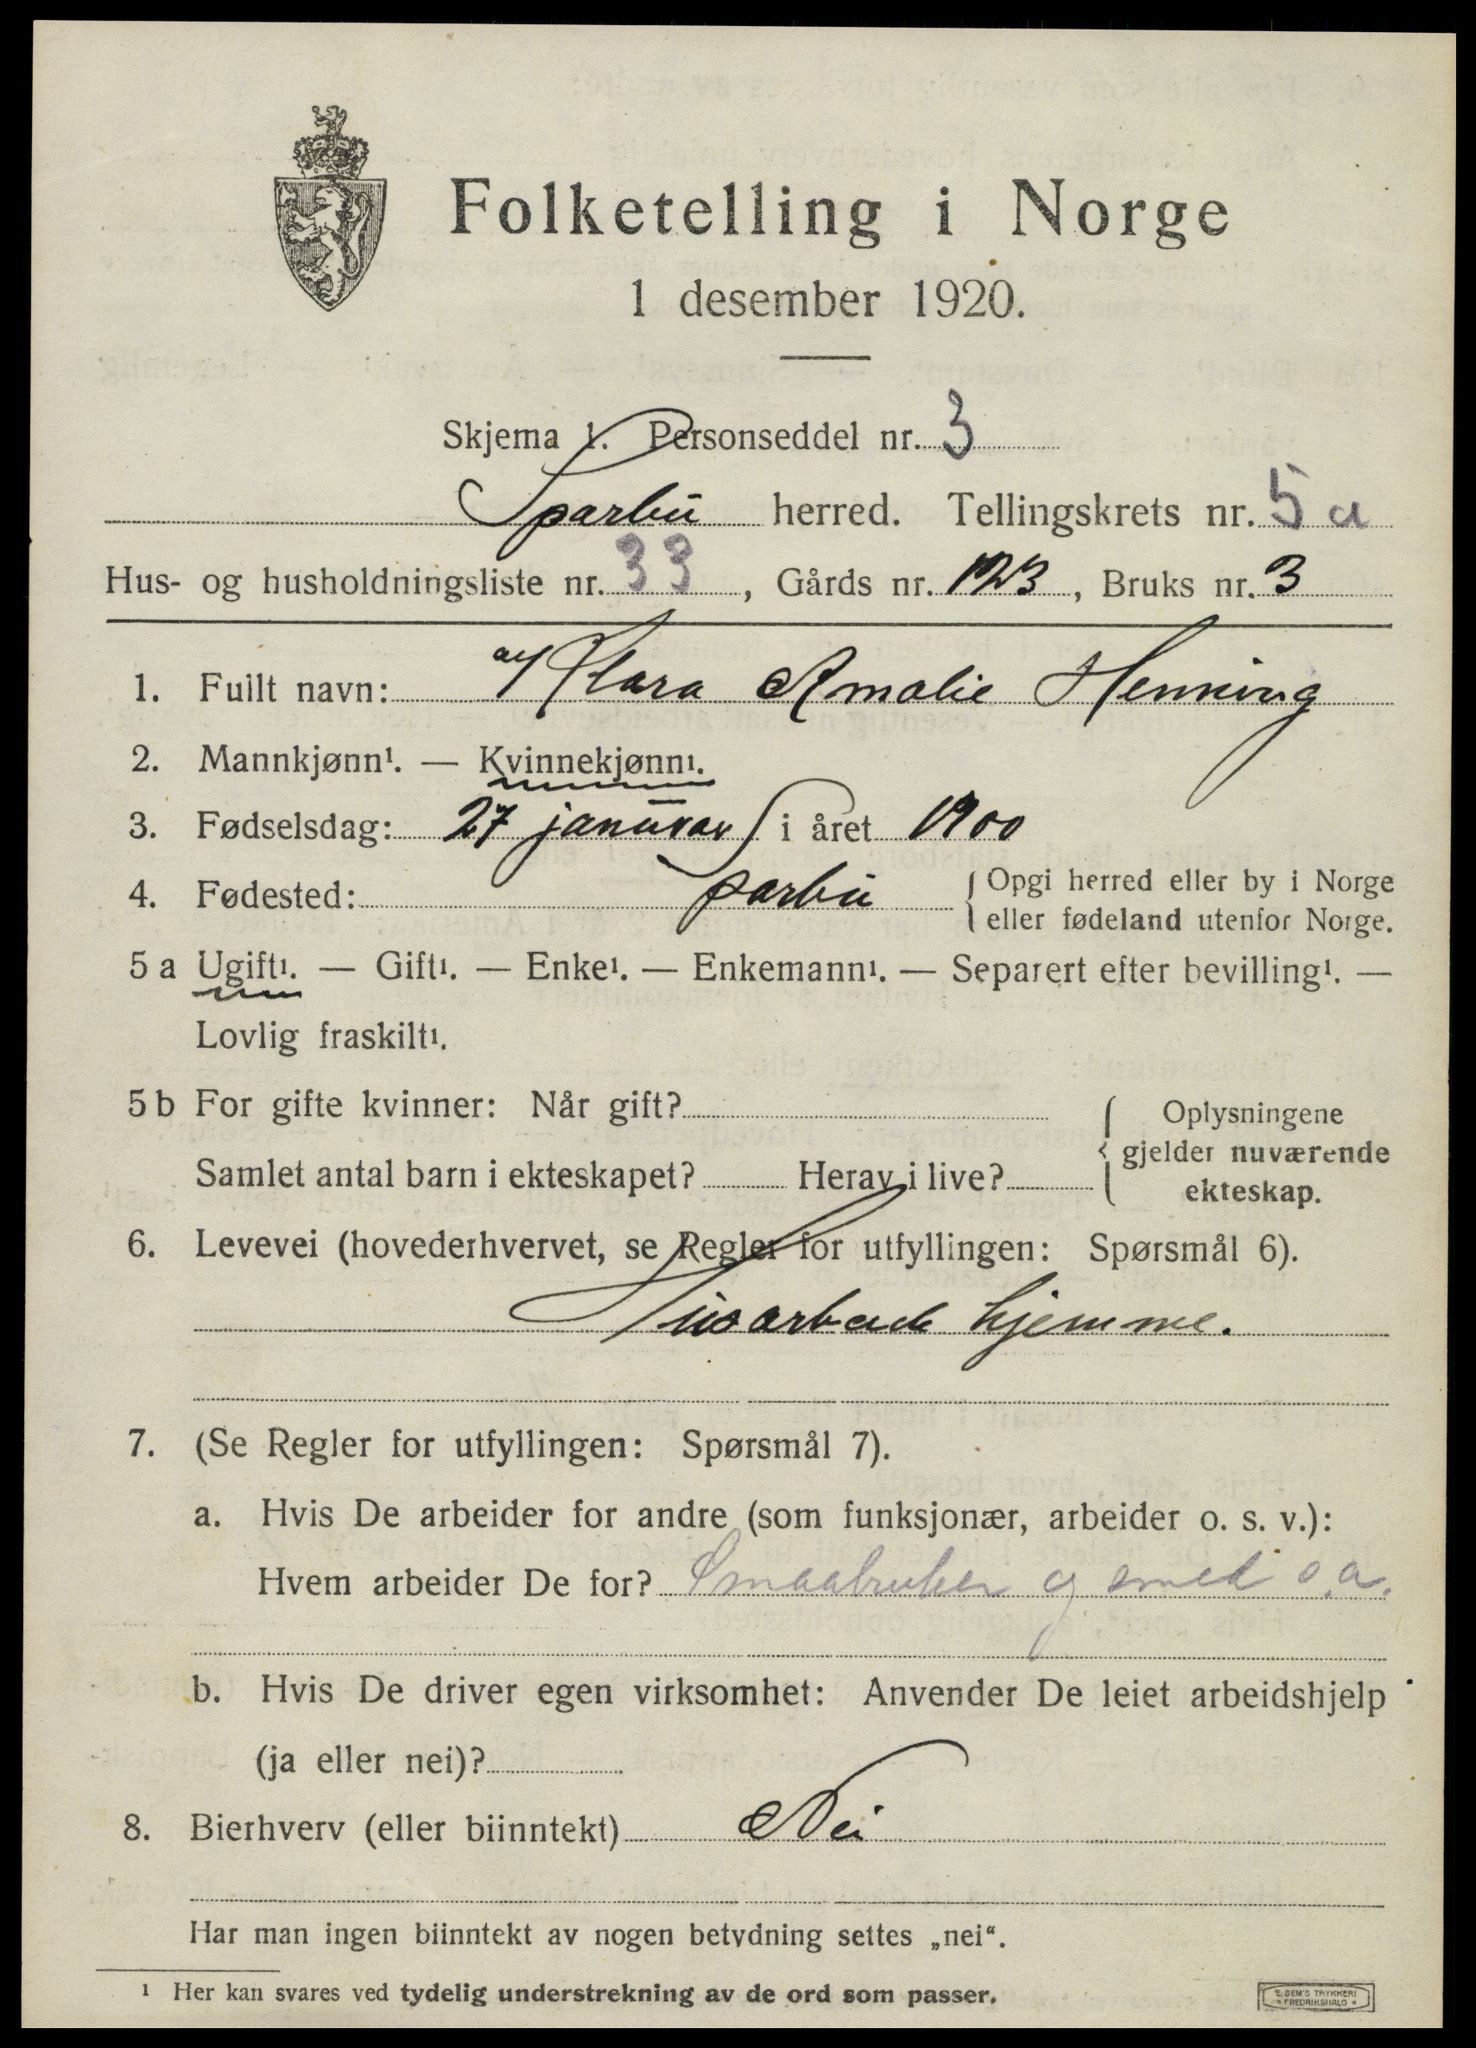 Folketelling i Norge
1 desember 1920.
Skjema 1. Personseddel nr. 3
Sparbu herred. Tellingskrets nr. 5 a
Hus- og husholdningsliste nr. 33, Gårds nr. 123, Bruks nr. 3
1. Fullt navn: Klara Amalie Henning
2. Mannkjønn¹. — Kvinnekjønn¹.
3. Fødselsdag: 27 januar i året 1900
4. Fødested: Sparbu { Opgi herred eller by i Norge
eller fødeland utenfor Norge.
5 a Ugift¹. — Gift¹. — Enke¹. — Enkemann¹. — Separert efter bevilling¹. —
Lovlig fraskilt¹.
5 b For gifte kvinner: Når gift? { Oplysningene
gjelder nuværende
Samlet antal barn i ekteskapet? Herav i live? ekteskap.
6. Levevei (hovederhvervet, se Regler for utfyllingen: Spørsmål 6).
Husarbeide hjemme.
7. (Se Regler for utfyllingen: Spørsmål 7).
a. Hvis De arbeider for andre (som funksjonær, arbeider o. s. v.):
Hvem arbeider De for? Smaabruker og smed s.a.
b. Hvis De driver egen virksomhet: Anvender De leiet arbeidshjelp
(ja eller nei)?
8. Bierhverv (eller biinntekt) Nei
Har man ingen biinntekt av nogen betydning settes „nei“.
¹ Her kan svares ved tydelig understrekning av de ord som passer.
E. SEM'S TRYKKERI
FREDRIKSHALD